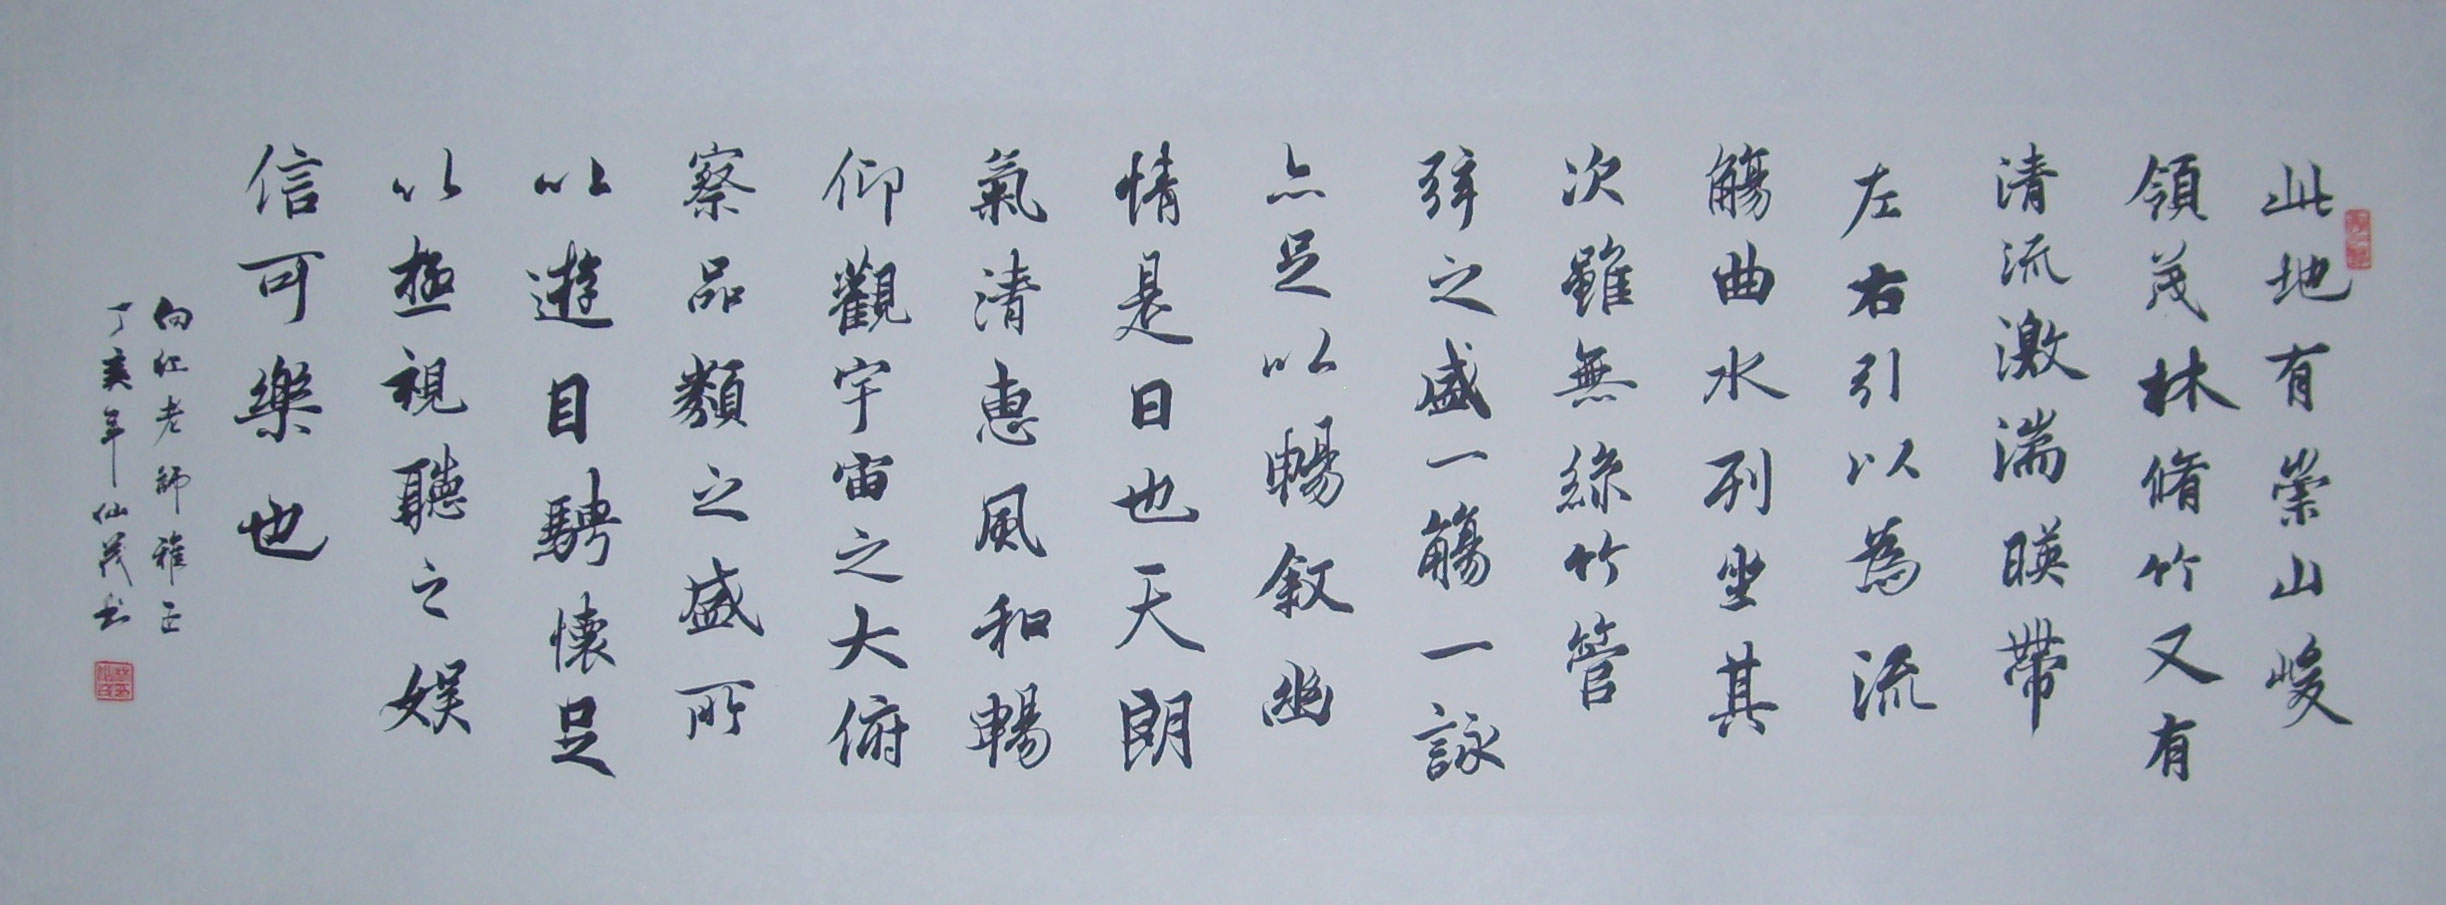 此地有崇山峻
領茂林脩竹又有
清流激湍暎帶
左右引以為流
觴曲水列坐其
次雖無絲竹管
弦之盛一觴一詠
亦足以暢敘幽
情是日也天朗
氣清惠風和暢
仰觀宇宙之大俯
察品類之盛所
以遊目騁懷足
以極視聽之娛
信可樂也
向紅老師雅正
丁亥年仙茂书